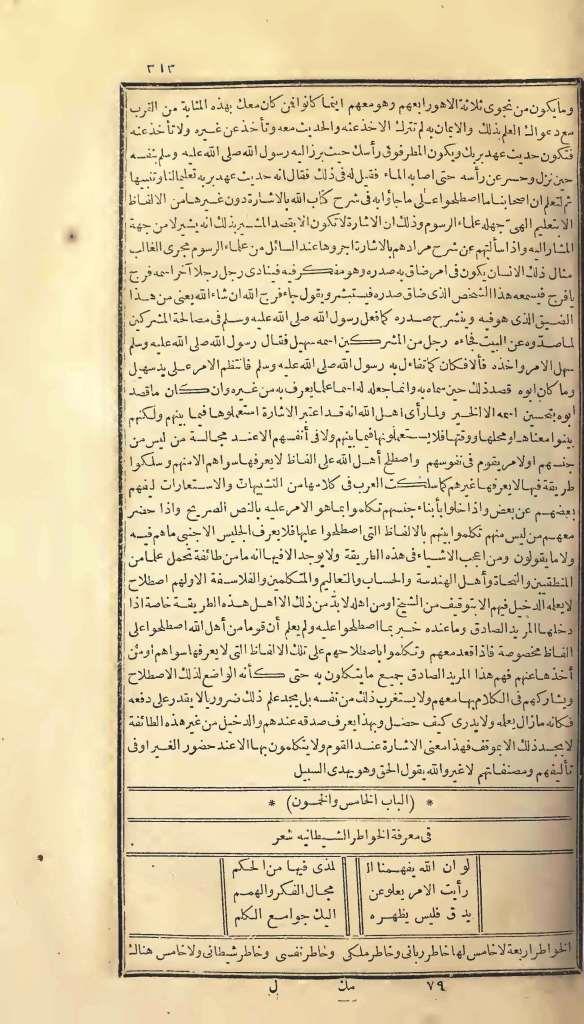 ٣١٣
وما يكون من نجوى ثلاثة الا هو رابعهم وهو معهم اينما كانوا فمن كان معك بهذه المثابة من القرب
مع دعواك العلم بذلك والايمان به لم تترك الاخذ عنه والحديث معه وتأخذ عن غيره ولا تأخذ عنه
فتكون حديث عهد بربك ويكون المطر فوق رأسك حيث برز اليه رسول الله صلى الله عليه وسلم بنفسه
حين نزل وحسر عن رأسه حتى اصابه الماء فقيل له في ذلك فقال انه حديث عهد بربه تعليما لنا وتنبيها
ثم لتعلم ان اصحابنا ما اصطلحوا على ما جاؤا به في شرح كتاب الله بالاشارة دون غيرها من الالفاظ
الا بتعليم الهي جهله علماء الرسوم وذلك ان الاشارة لا تكون الا بقصد المشير بذلك انه يشير لا من جهة
المشار اليه واذا سألتهم عن شرح مرادهم بالاشارة اجروها عند السائل من علماء الرسوم مجرى الغالب
مثال ذلك الانسان يكون في امر ضاق به صدره وهو مفكر فيه فينادى رجل رجلا آخر اسمه فرج
يا فرج فيسمعه هذا الشخص الذى ضاق صدره فيستبشر ويقول جاء فرج الله ان شاء الله يعنى من هذا
الضيق الذى هو فيه وينشرح صدره كما فعل رسول الله صلى الله عليه وسلم فى مصالحة المشركين
لما صدوه عن البيت فجاءه رجل من المشركين اسمه سهيل فقال رسول الله صلى الله عليه وسلم
سهل الامر واخذه فألا فكان كما تفاءل به رسول الله صلى الله عليه وسلم فانتظم الامر على يد سهيل
وما كان ابوه قصد ذلك حين سماه به وانما جعله له اسما علما يعرف به من غيره وان كان ما قصد
ابوه بتحسين اسمه الا الخير ولما رأى اهل الله انه قد اعتبر الاشارة استعملوها فيما بينهم ولكنهم
بينوا معناها ومحلها ووقتها فلا يستعملونها فيما بينهم ولا فى أنفسهم الا عند مجالسة من ليس من
جنسهم او لامر يقوم فى نفوسهم واصطلح أهل الله على الفاظ لا يعرفها سواهم الا منهم وسلكوا
طريقة فيها لا يعرفها غيرهم كما سلكت العرب فى كلامها من التشبيهات والاستعارات ليفهم
بعضهم عن بعض واذا خلوا بأبناء جنسهم تكلموا بما هو الامر عليه بالنص الصريح واذا حضر
معهم من ليس منهم تكلموا بينهم بالالفاظ التى اصطلحوا عليها فلا يعرف الجليس الاجنبي ما هم فيسه
ولا ما يقولون ومن اعجب الاشياء فى هذه الطريقة ولا يوجد الا فيها انه ما من طائفة تحمل علما من
المنطقيين والنحاة وأهل الهندسة والحساب والتعاليم والمتكلمين والفلاسفة الا ولهم اصطلاح
لا يعلمه الدخيل فيهم الا بتوقيف من الشيخ او من اهله لابد من ذلك الا اهل هذه الطريقة خاصة اذا
دخلها المريد الصادق وما عنده خبر بما اصطلحوا عليه ولم يعلم أن قوما من أهل الله اصطلحوا على
الفاظ مخصوصة فاذا قعد معهم وتكلموا باصطلاحهم على تلك الالفاظ التى لا يعرفها سواهم او من
أخذها عنهم فهم هذا المريد الصادق جميع ما يتكلون به حتى كأنه الواضع لذلك الاصطلاح
ويشاركهم فى الكلام بها معهم ولا يستغرب ذلك من نفسه بل يجد علم ذلك ضروريا لا يقدر على دفعه
فكانه ما زال يعلمه ولا يدرى كيف حصل وبهذا يعرف صدقه عندهم والدخيل من غير هذه الطائفة
لا يجد ذلك الا بموقف فهذا معنى الاشارة عند القوم ولا يتكلمون بها الا عند حضور الغير او فى
تآليفهم ومصنفاتهم لا غير والله يقول الحق وهو يهدى السبيل
* (الباب الخامس والخمسون) *
فى معرفة الخواطر الشيطانيه شعر
لو ان الله يفهمنا ال لمذى فيها من الحكم
رأيت الامر يعلو عن مجال الفكر والهمم
يدق فليس يظهره اليك جوامع الكلم
الخواطر اربعة لا خامس لها خاطر ربانى وخاطر ملكى وخاطر نفسى وخاطر شيطانى ولا خامس هنالك
٧٩ مك ل